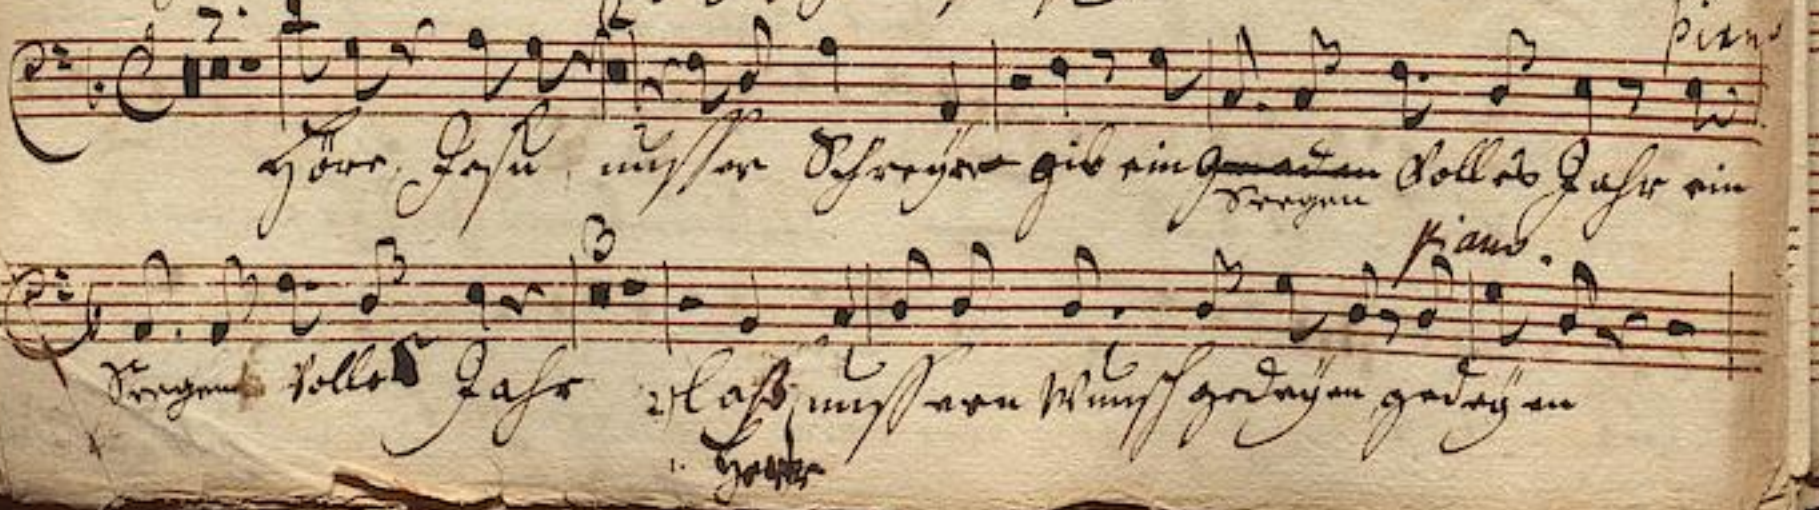 7.
2
piano
Höre Jesu unsser Schreyen gib ein Gnaden Volles Jahr ein
Seegen
piano.
3
Seegen volles Jahr laß unssern Wunsch gedeyen gedeyen